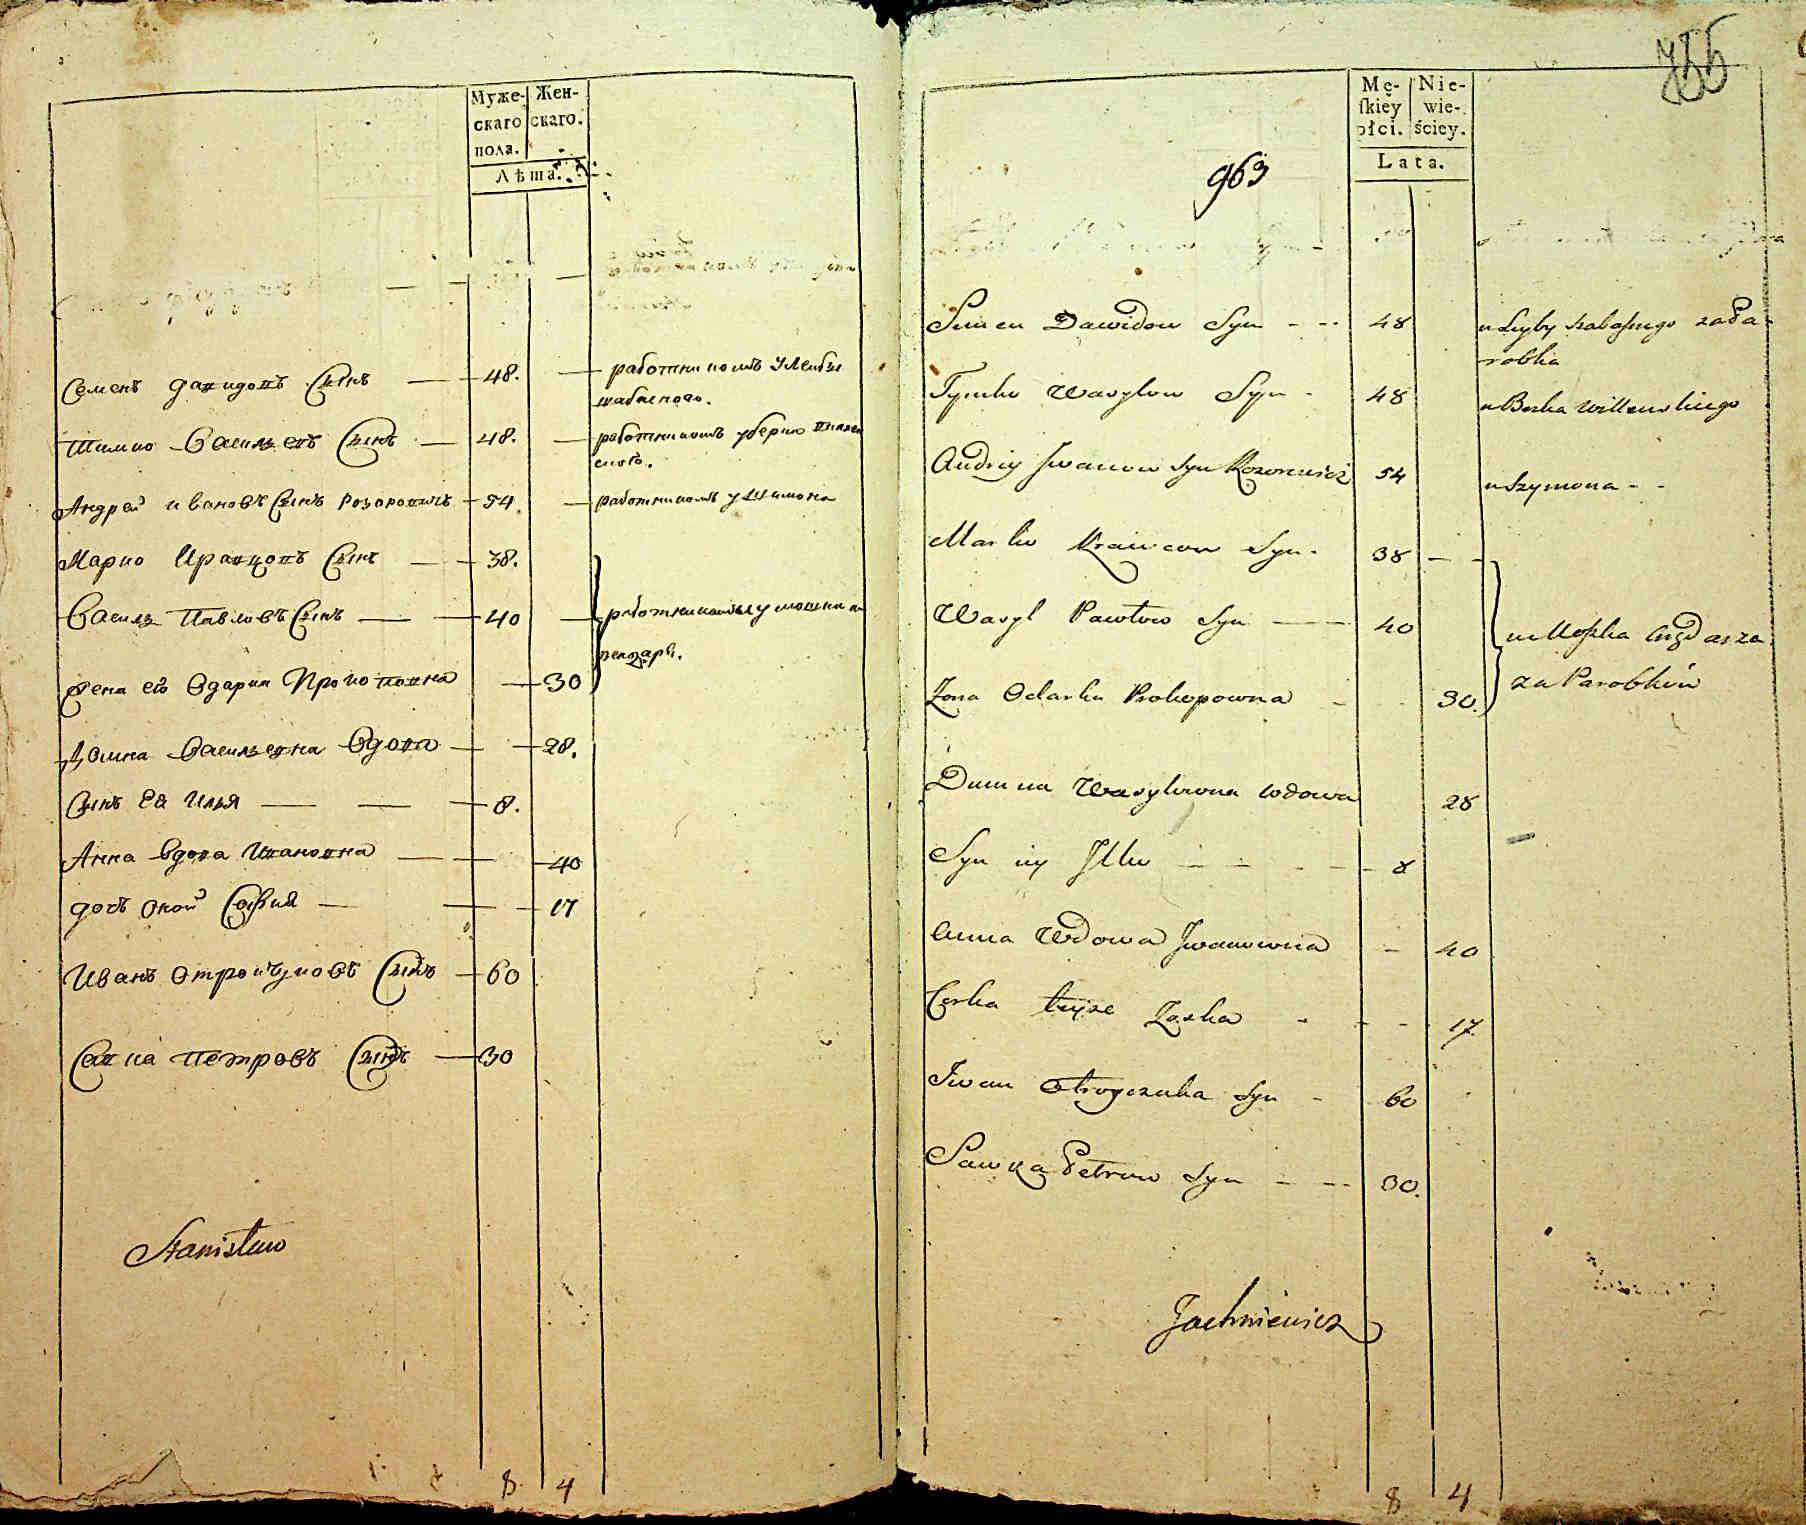 Муже-
скаго
пола.
Жен-
скаго.
Лѣта.
Семенъ Давидовъ Сынъ — 48. — работникомъ у Лейбы
шабасного.
Тимко Васильевъ Сынъ — 48. — работникомъ у Берка
Андрей Ивановъ Сынъ Розоровичъ 54. — работникомъ у Шимона
Марко Кравцовъ Сынъ — 38.
Василь Павловъ Сынъ — 40 — работниками у Мошка
Жена его Одарка Прокоповна — 30
Домна Васильевна Вдова — 28.
Сынъ Ея Илья — 8.
Анна Вдова Ивановна — 40
дочь оной София — 17
Иванъ Отройчуковъ Сынъ — 60
Савка Петровъ Сынъ — 30
Stanisław
8 4
963
Mę-
ſkiey
płci.
Nie-
wie-
ściey.
Lata.
Semen Dawidow Syn - -- 48 u Leyby szabaśnego za Pa-
robka
Tymko Wasylow Syn - 48 u Berka
Andriy Iwanow Syn 54 u Szymona - -
Marko Krawcow Syn - 38
Wasyl Pawłow Syn — 40 u Moszka
za Parobków
Żona Odarka Prokopowna - 30.
Dumna Wasylowna Wdowa 28
Syn iey Ilko - - - - 8
Anna Wdowa Iwanowna - 40
Corka teyże Zośka - - - 17
Iwan Otroyczuka Syn - 60
Sawka Petrow Syn - -- 30.
Jachniewicz
8 4